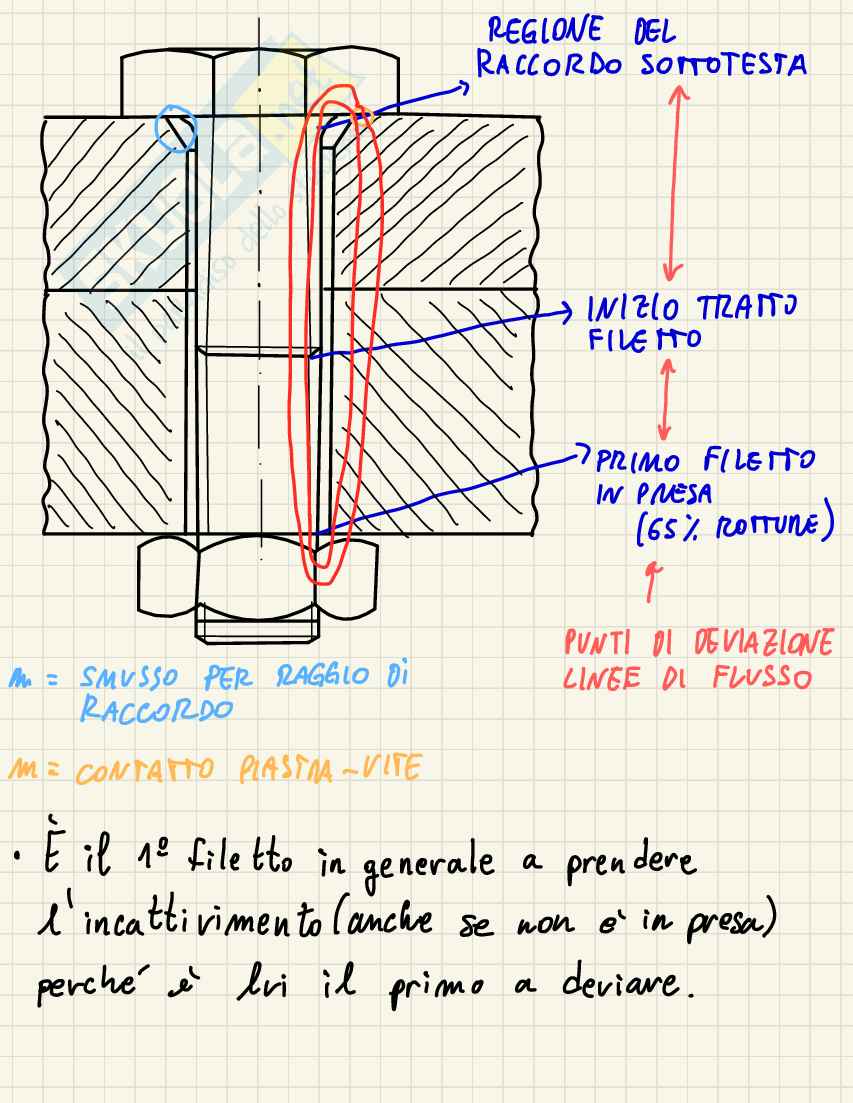 REGIONE DEL
RACCORDO SOTTOTESTA
INIZIO TRATTO
FILETTO
PRIMO FILETTO
IN PRESA
(65% ROTTURE)
PUNTI DI DEVIAZIONE
LINEE DI FLUSSO
m = SMUSSO PER RAGGIO DI
RACCORDO
m = CONTATTO PIASTRA-VITE
• È il 1º filetto in generale a prendere
l'incattivimento (anche se non è in presa)
perché è lui il primo a deviare.